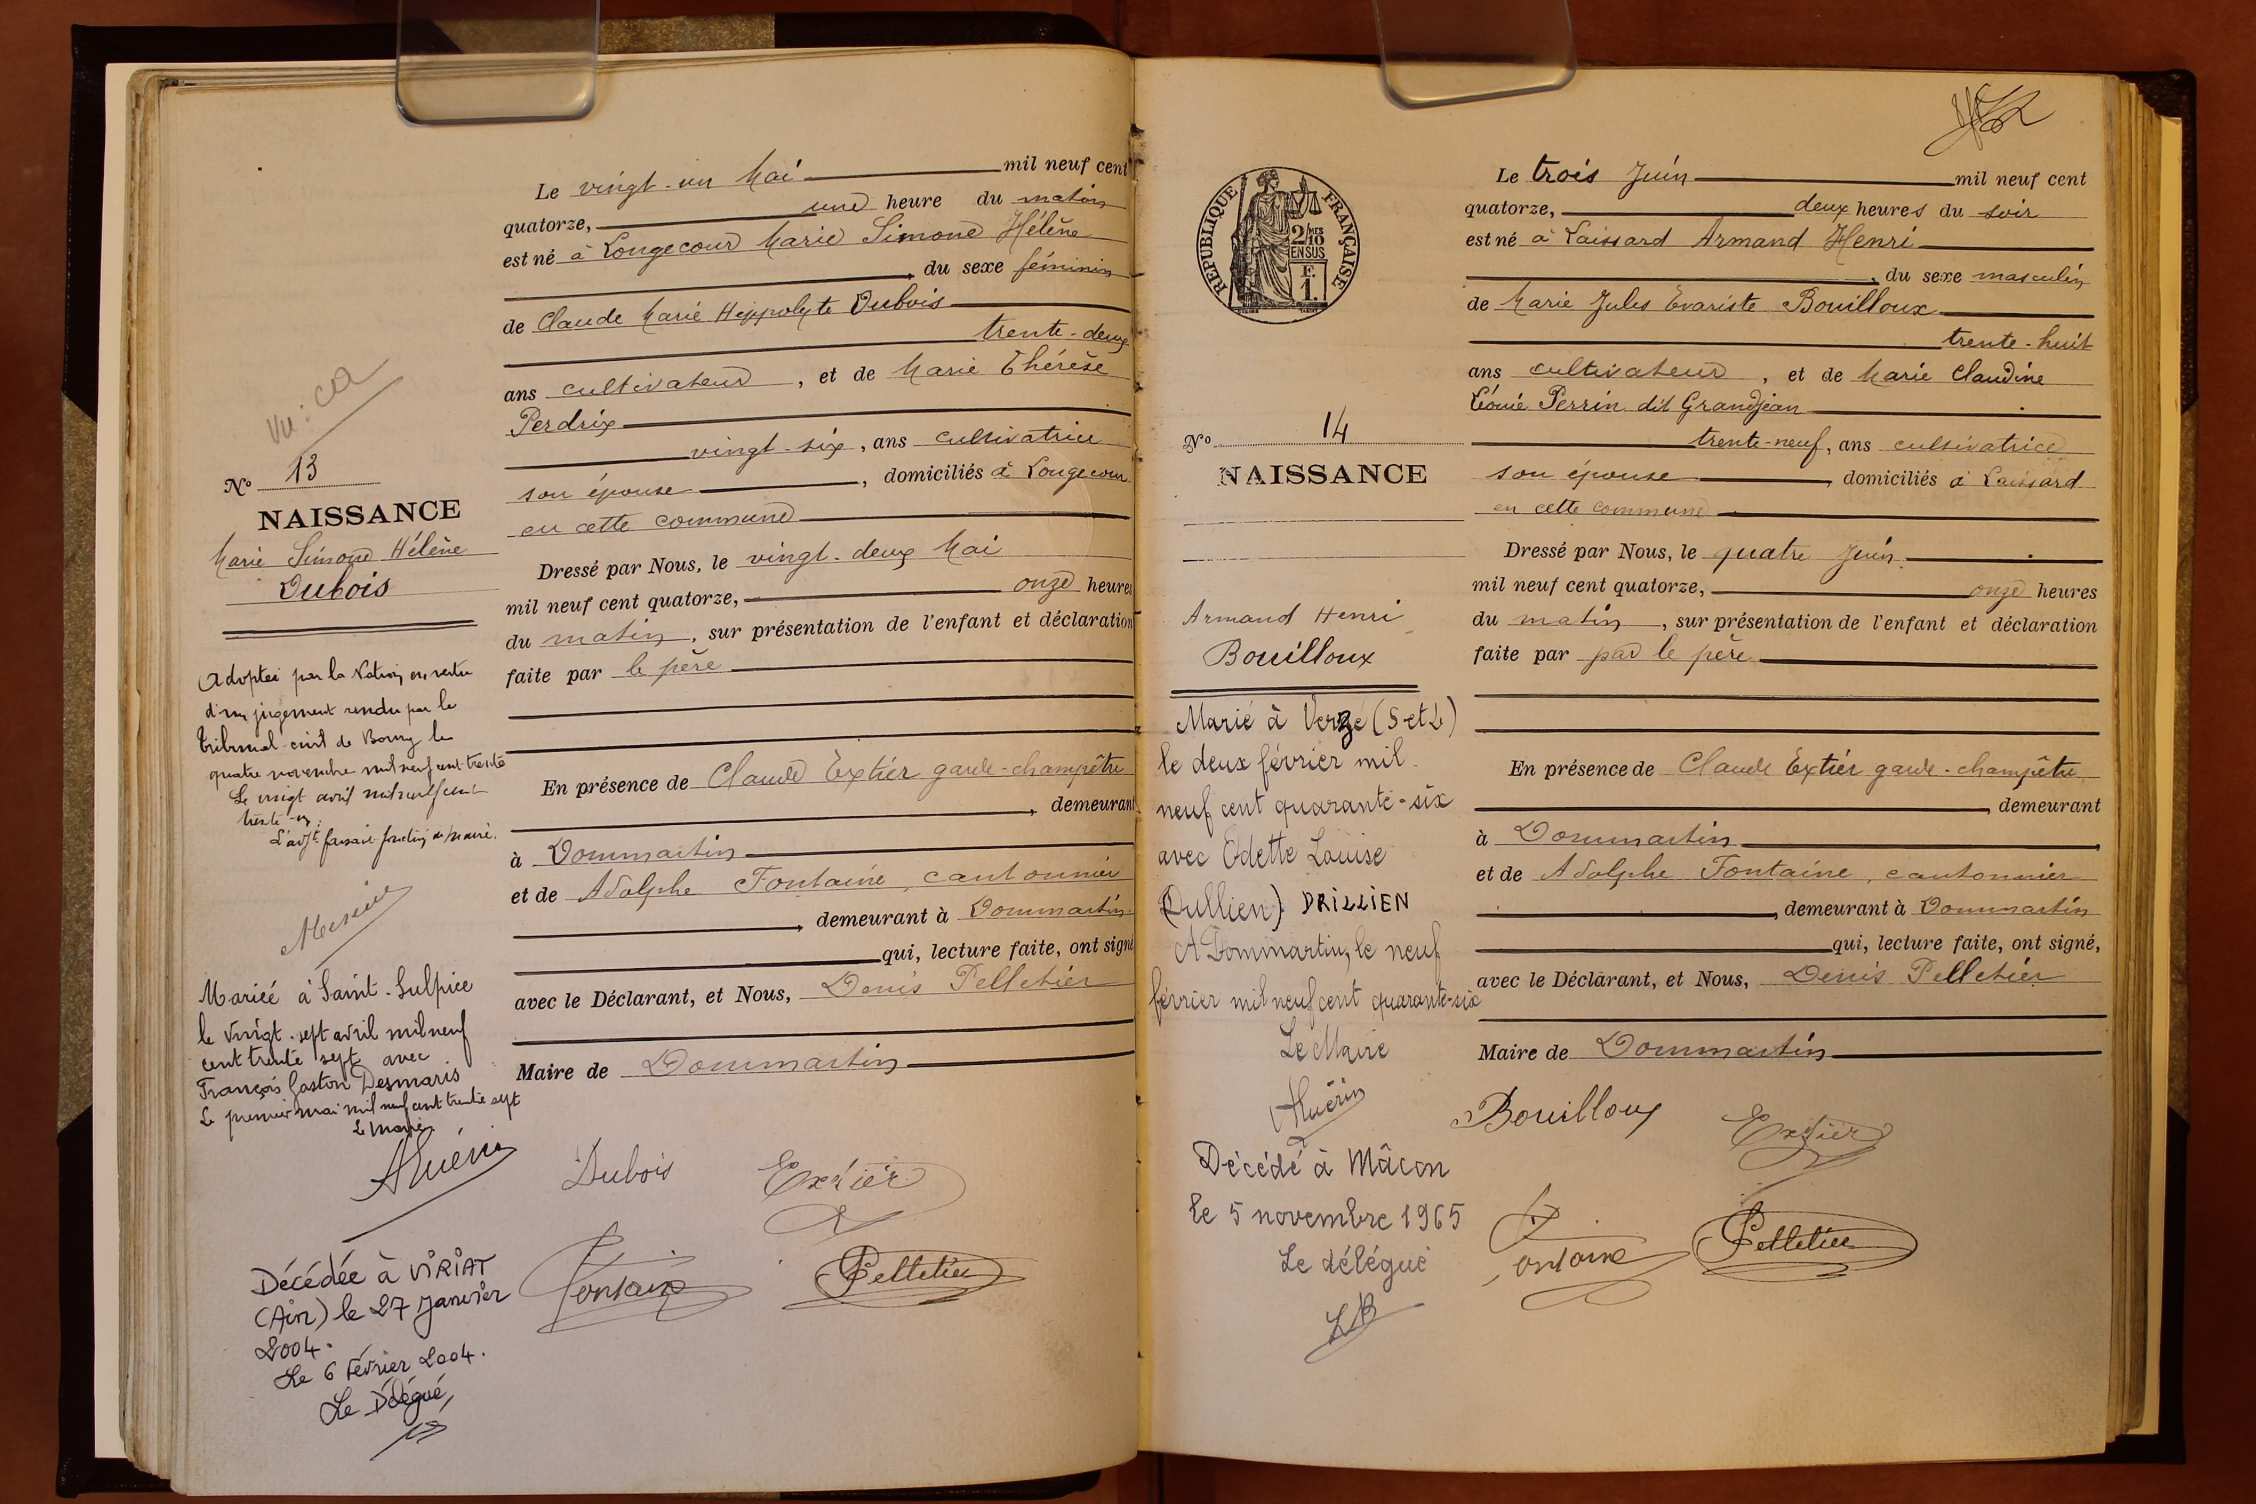 Vu :
N° 13
NAISSANCE
Marie Simone Hélène
Dubois
Adoptée par la Nation en vertu
d'un jugement rendu par le
Tribunal civil de Bourg le
quatre novembre mil neuf cent trente
Le vingt avril mil neuf cent
trente-un
L'adjt faisant fonction de Maire.
Mariée à Saint-Sulpice
le vingt-sept avril mil neuf
cent trente sept avec
François Gaston Desmaris
Le premier mai mil neuf cent trente sept
Le Maire
AGuérin
Décédée à VIRIAT
(Ain) le 27 Janvier
2004.
Le 6 Février 2004.
Le Délégué,
Le vingt-un Mai mil neuf cent
quatorze, une heure du matin
est né à Longecour Marie Simone Hélène
, du sexe féminin
de Claude Marie Hippolyte Dubois
trente-deux
ans cultivateur , et de Marie Thérèse
Perdrix
vingt-six , ans cultivatrice
son épouse , domiciliés à Longecour
en cette commune
Dressé par Nous, le vingt-deux Mai
mil neuf cent quatorze, onze heures
du matin , sur présentation de l'enfant et déclaration
faite par le père
En présence de Claude Extier garde-champêtre
, demeurant
à Dommartin
et de Adolphe Fontaine, cantonnier
, demeurant à Dommartin
qui, lecture faite, ont signé
avec le Déclarant, et Nous, Denis Pelletier
Maire de Dommartin
Dubois Extier
Fontaine Pelletier
REPUBLIQUE FRANÇAISE
2/10 MES
EN SUS
F.
1.
N° 14
NAISSANCE
Armand Henri
Bouilloux
Marié à Verzé (S et L)
le deux février mil
neuf cent quarante-six
avec Odette Louise
(Dullien) DRILLIEN
A Dommartin, le neuf
février mil neuf cent quarante-six
Le Maire
AGuérin
Décédé à Mâcon
le 5 novembre 1965
Le délégué
Le trois Juin mil neuf cent
quatorze, deux heures du soir
est né à Laissard Armand Henri
, du sexe masculin
de Marie Jules Evariste Bouilloux
trente-huit
ans cultivateur , et de Marie Claudine
Perrin dit Grandjean
trente-neuf , ans cultivatrice
son épouse , domiciliés à Laissard
en cette commune
Dressé par Nous, le quatre Juin
mil neuf cent quatorze, onze heures
du matin , sur présentation de l'enfant et déclaration
faite par par le père
En présence de Claude Extier garde-champêtre
, demeurant
à Dommartin
et de Adolphe Fontaine, cantonnier
, demeurant à Dommartin
qui, lecture faite, ont signé,
avec le Déclarant, et Nous, Denis Pelletier
Maire de Dommartin
Bouilloux Extier
Fontaine Pelletier